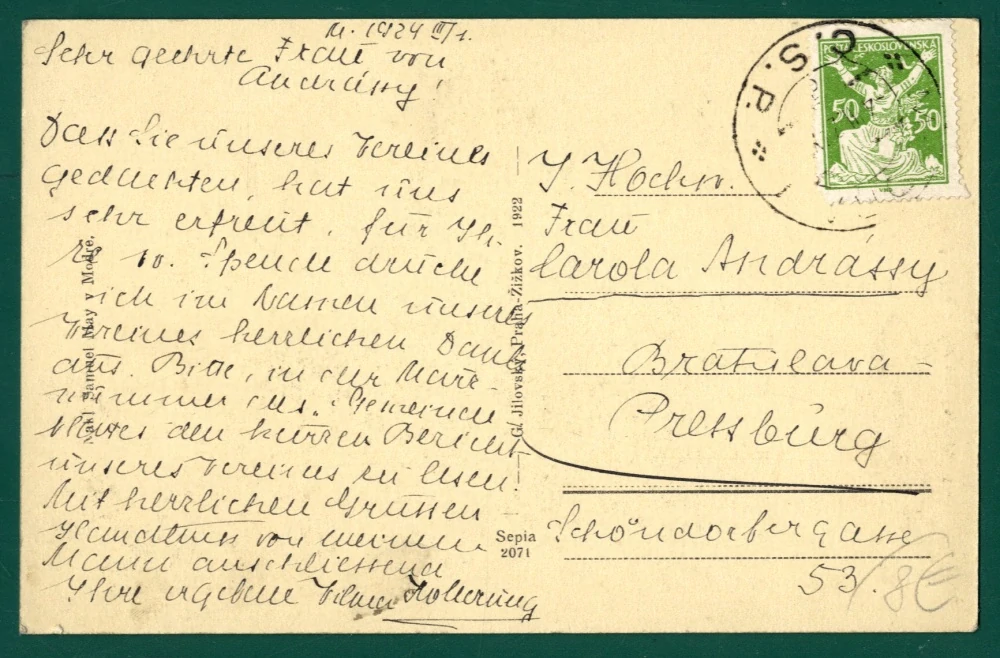 M. 1924 III/1.
Sehr geehrte Frau von
Andrássy!
Dass Sie unseres Vereines
gedachten hat uns
sehr erfreut. Für Ih-
re w. Spende drücke
ich im Namen unseres
Vereines herrlichen Dank
aus. Bitte, in der März-
nummer des „Gemeinde
blattes den kurzen Bericht
unseres Vereines zu lesen.
Mit herrlichen Grüssen
Handkuss von meinem
Mann anschliessend
Ihre ergebene Vilma
Nakl. Samuel May v Modre.
G. Jilovský, Praha-Žižkov. 1922
Sepia
2071
Č.S.P.
POŠTA ČESKOSLOVENSKÁ
50 50
I. Hochw.
Frau
Carola Andrássy
Bratislava-
Pressburg
Schöndorfergasse
53.
8€